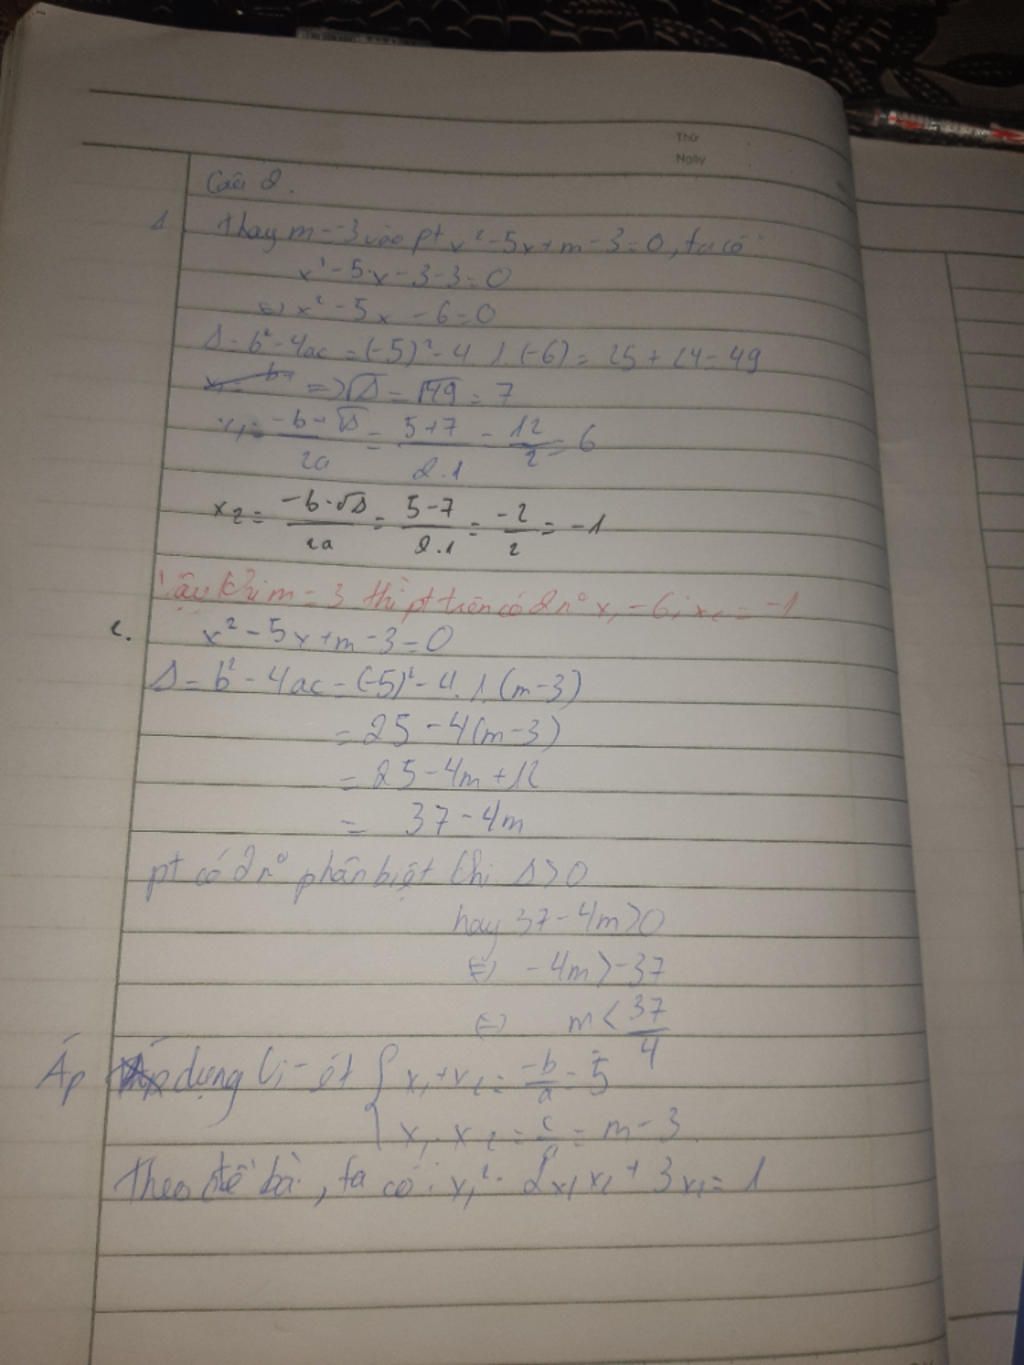 Thứ
Ngày
Câu 2.
1. Thay m=-3 vào pt x²-5x+m-3=0, ta có:
x²-5.x-3-3=0
⇔ x²-5x-6=0
Δ=b²-4ac=(-5)²-4.1.(-6)=25+24=49
=>√Δ=√49=7
x₁=\frac{-b+√Δ}{2a}=\frac{5+7}{2.1}=\frac{12}{2}=6
x₂=\frac{-b-√Δ}{2a}=\frac{5-7}{2.1}=\frac{-2}{2}=-1
Vậy khi m=-3 thì pt trên có 2 n⁰ x₁=6; x₂=-1
2. x²-5x+m-3=0
Δ=b²-4ac=(-5)²-4.1.(m-3)
=25-4(m-3)
=25-4m+12
= 37-4m
pt có 2 n⁰ phân biệt khi Δ>0
hay 37-4m>0
⇔ -4m>-37
⇔ m<\frac{37}{4}
Áp dụng Vi-ét { x₁+x₂=\frac{-b}{a}=5
x₁.x₂=\frac{c}{a}=m-3
Theo đề bài, ta có: x₁²-2x₁x₂+3x₂=1